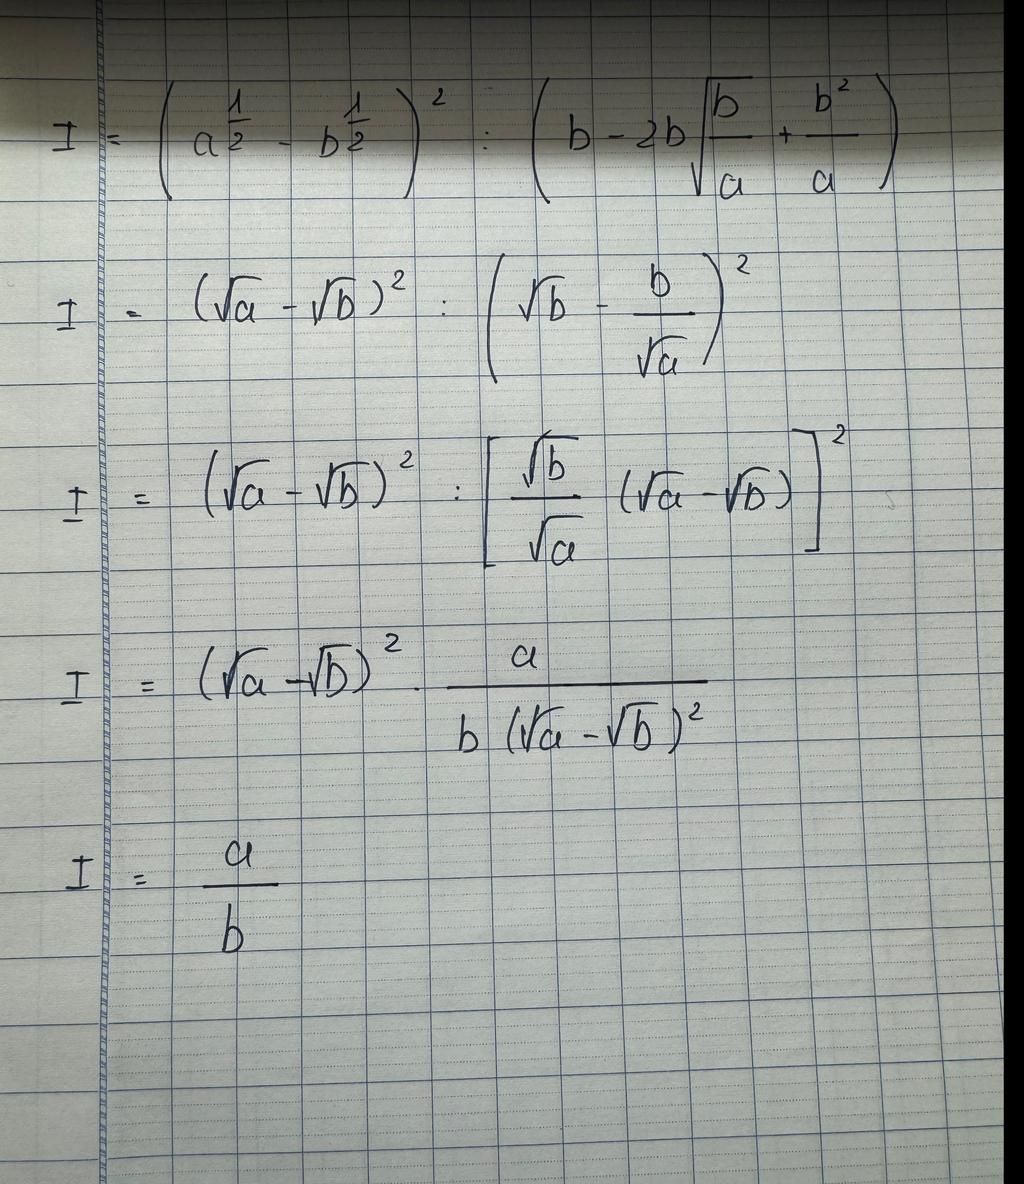 I = (a^(1/2) - b^(1/2))² : (b - 2b√(b/a) + b²/a)
I = (√a - √b)² : (√b - b/√a)²
I = (√a - √b)² : [√b/√a (√a - √b)]²
I = (√a - √b)² · a/(b (√a - √b)²)
I = a/b